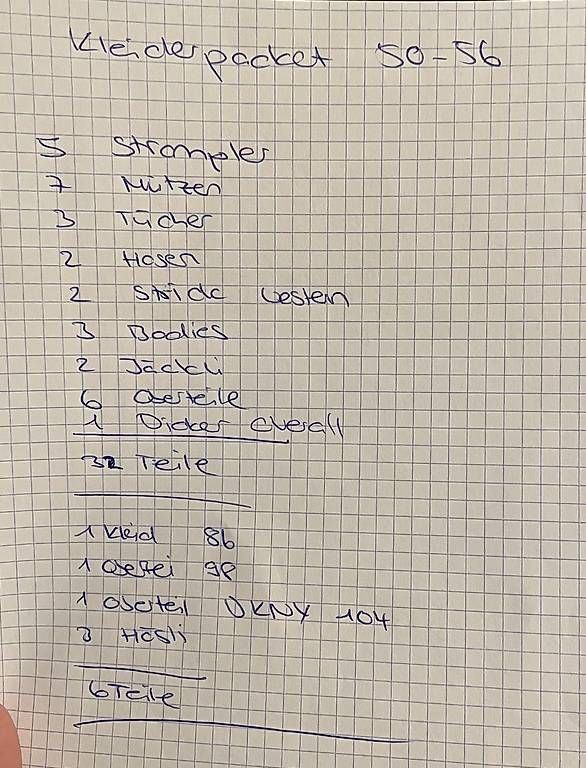 Kleiderpacket 50-56
5 Strampler
7 Mützen
3 Tücher
2 Hosen
2 westen
3 Bodies
2 Jäckli
6 Oberteile
1 Dicker Overall
32 Teile
1 Kleid 86
1 Obertei 98
1 Oberteil DKNY 104
3 Hösli
6 Teile